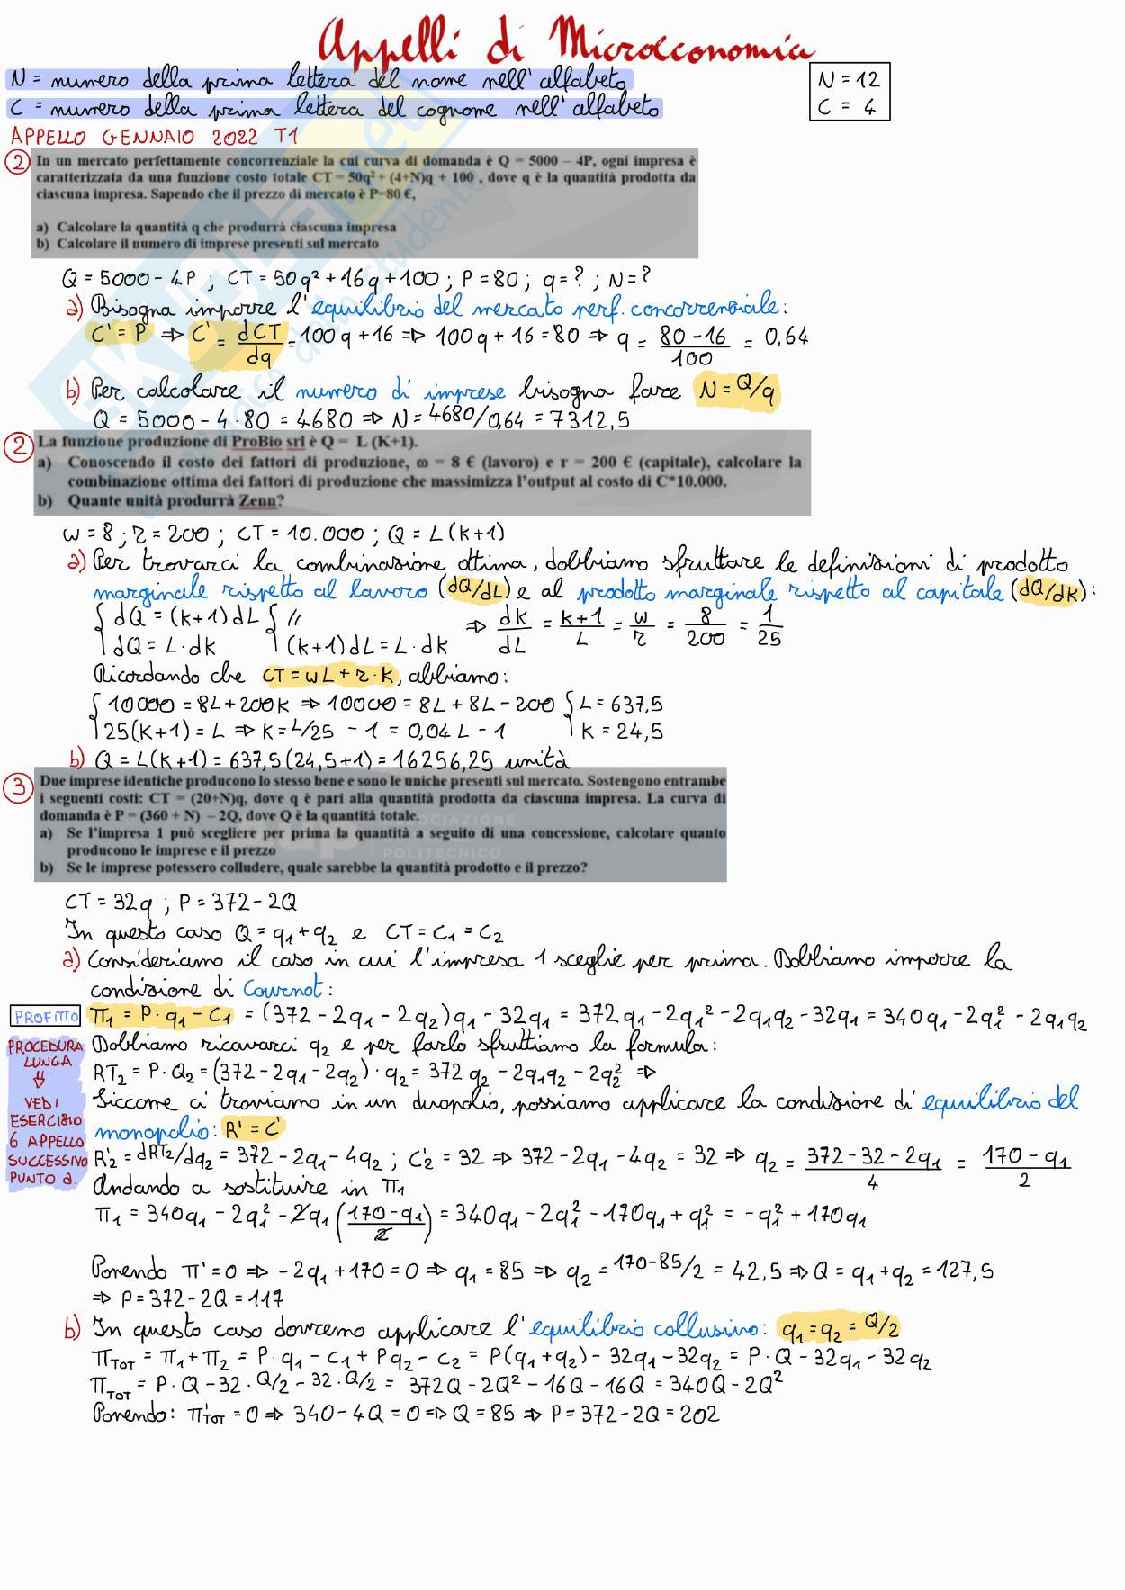 Appelli di Microeconomia
N = numero della prima lettera del nome nell'alfabeto
C = numero della prima lettera del cognome nell'alfabeto
N = 12
C = 4
APPELLO GENNAIO 2022 T1
② In un mercato perfettamente concorrenziale la cui curva di domanda è Q = 5000 – 4P, ogni impresa è
caratterizzata da una funzione costo totale CT = 50q² + (4+N)q + 100 , dove q è la quantità prodotta da
ciascuna impresa. Sapendo che il prezzo di mercato è P=80 €,
a) Calcolare la quantità q che produrrà ciascuna impresa
b) Calcolare il numero di imprese presenti sul mercato
Q = 5000 - 4P ; CT = 50q² + 16q + 100 ; P = 80 ; q = ? ; N = ?
a) Bisogna imporre l'equilibrio del mercato perf. concorrenziale:
C' = P ⇒ C' = dCT/dq = 100q + 16 ⇒ 100q + 16 = 80 ⇒ q = (80 - 16)/100 = 0,64
b) Per calcolare il numero di imprese bisogna fare N = Q/q
Q = 5000 - 4·80 = 4680 ⇒ N = 4680/0,64 = 7312,5
② La funzione produzione di ProBio srl è Q = L (K+1).
a) Conoscendo il costo dei fattori di produzione, ω = 8 € (lavoro) e r = 200 € (capitale), calcolare la
combinazione ottima dei fattori di produzione che massimizza l'output al costo di C*10.000.
b) Quante unità produrrà Zenn?
w = 8 ; r = 200 ; CT = 10.000 ; Q = L(k+1)
a) Per trovarci la combinazione ottima, dobbiamo sfruttare le definizioni di prodotto
marginale rispetto al lavoro (dQ/dL) e al prodotto marginale rispetto al capitale (dQ/dk):
{ dQ = (k+1)dL { // ⇒ dk/dL = (k+1)/L = w/r = 8/200 = 1/25
{ dQ = L·dk { (k+1)dL = L·dk
Ricordando che CT = wL + r·K, abbiamo:
{ 10000 = 8L + 200K ⇒ 10000 = 8L + 8L - 200 { L = 637,5
{ 25(K+1) = L ⇒ K = L/25 - 1 = 0,04L - 1 { K = 24,5
b) Q = L(k+1) = 637,5(24,5+1) = 16256,25 unità
③ Due imprese identiche producono lo stesso bene e sono le uniche presenti sul mercato. Sostengono entrambe
i seguenti costi: CT = (20+N)q, dove q è pari alla quantità prodotta da ciascuna impresa. La curva di
domanda è P = (360 + N) – 2Q, dove Q è la quantità totale.
a) Se l'impresa 1 può scegliere per prima la quantità a seguito di una concessione, calcolare quanto
producono le imprese e il prezzo
b) Se le imprese potessero colludere, quale sarebbe la quantità prodotto e il prezzo?
CT = 32q ; P = 372 - 2Q
In questo caso Q = q₁ + q₂ e CT = C₁ = C₂
a) Consideriamo il caso in cui l'impresa 1 sceglie per prima. Dobbiamo imporre la
condizione di Cournot:
PROFITTO π₁ = P·q₁ - C₁ = (372 - 2q₁ - 2q₂)q₁ - 32q₁ = 372q₁ - 2q₁² - 2q₁q₂ - 32q₁ = 340q₁ - 2q₁² - 2q₁q₂
PROCEDURA LUNGA ⇓ VEDI ESERCIZIO 6 APPELLO SUCCESSIVO PUNTO a.
Dobbiamo ricavarci q₂ e per farlo sfruttiamo la formula:
RT₂ = P·Q₂ = (372 - 2q₁ - 2q₂)·q₂ = 372q₂ - 2q₁q₂ - 2q₂² ⇒
Siccome ci troviamo in un duopolio, possiamo applicare la condizione di equilibrio del
monopolio: R' = C'
R'₂ = dRT₂/dq₂ = 372 - 2q₁ - 4q₂ ; C'₂ = 32 ⇒ 372 - 2q₁ - 4q₂ = 32 ⇒ q₂ = (372 - 32 - 2q₁)/4 = (170 - q₁)/2
Andando a sostituire in π₁
π₁ = 340q₁ - 2q₁² - 2q₁((170 - q₁)/2) = 340q₁ - 2q₁² - 170q₁ + q₁² = -q₁² + 170q₁
Ponendo π' = 0 ⇒ -2q₁ + 170 = 0 ⇒ q₁ = 85 ⇒ q₂ = 170-85/2 = 42,5 ⇒ Q = q₁ + q₂ = 127,5
⇒ P = 372 - 2Q = 117
b) In questo caso dovremo applicare l'equilibrio collusivo: q₁ = q₂ = Q/2
π_TOT = π₁ + π₂ = P·q₁ - C₁ + Pq₂ - C₂ = P(q₁ + q₂) - 32q₁ - 32q₂ = P·Q - 32q₁ - 32q₂
π_TOT = P·Q - 32·Q/2 - 32·Q/2 = 372Q - 2Q² - 16Q - 16Q = 340Q - 2Q²
Ponendo: π'_TOT = 0 ⇒ 340 - 4Q = 0 ⇒ Q = 85 ⇒ P = 372 - 2Q = 202